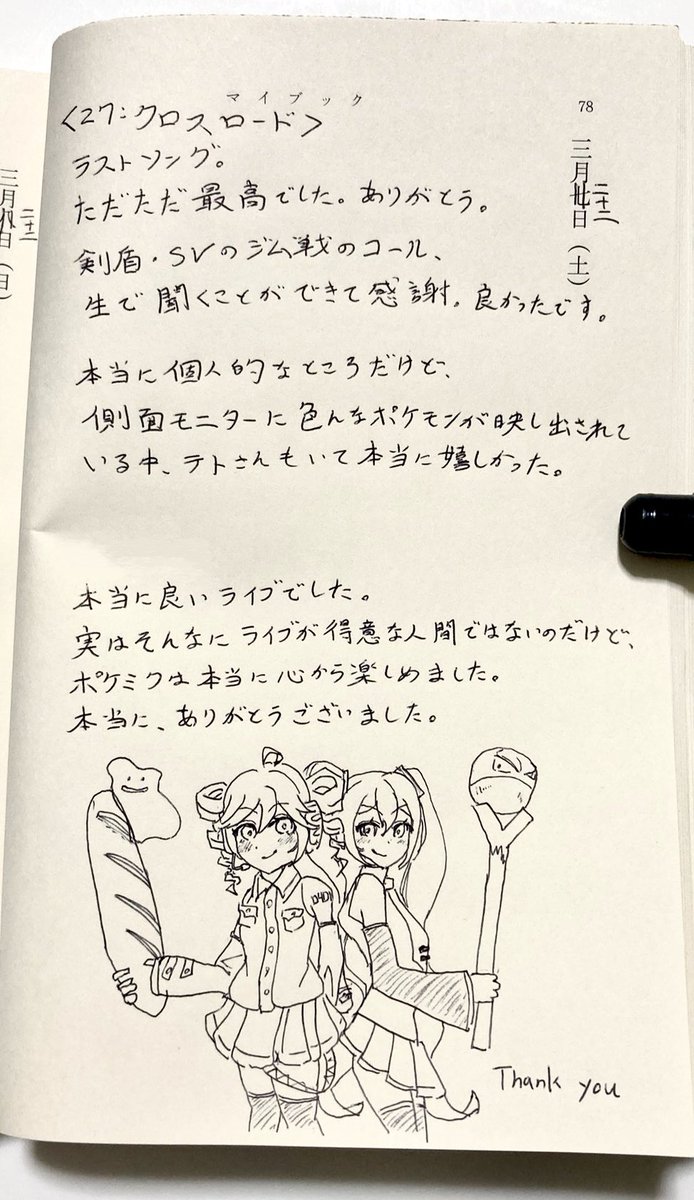 マイブック
78
三月廿日（土）
二十二
三月
日（日）
二十二
<27:クロスロード>
ラストソング。
ただただ最高でした。ありがとう。
剣盾・SVのジム戦のコール、
生で聞くことができて感謝。良かったです。
本当に個人的なところだけど、
側面モニターに色んなポケモンが映し出されて
いる中、テトさんもいて本当に嬉しかった。
本当に良いライブでした。
実はそんなにライブが得意な人間ではないのだけど、
ポケミクは本当に心から楽しめました。
本当に、ありがとうございました。
0401
Thank you